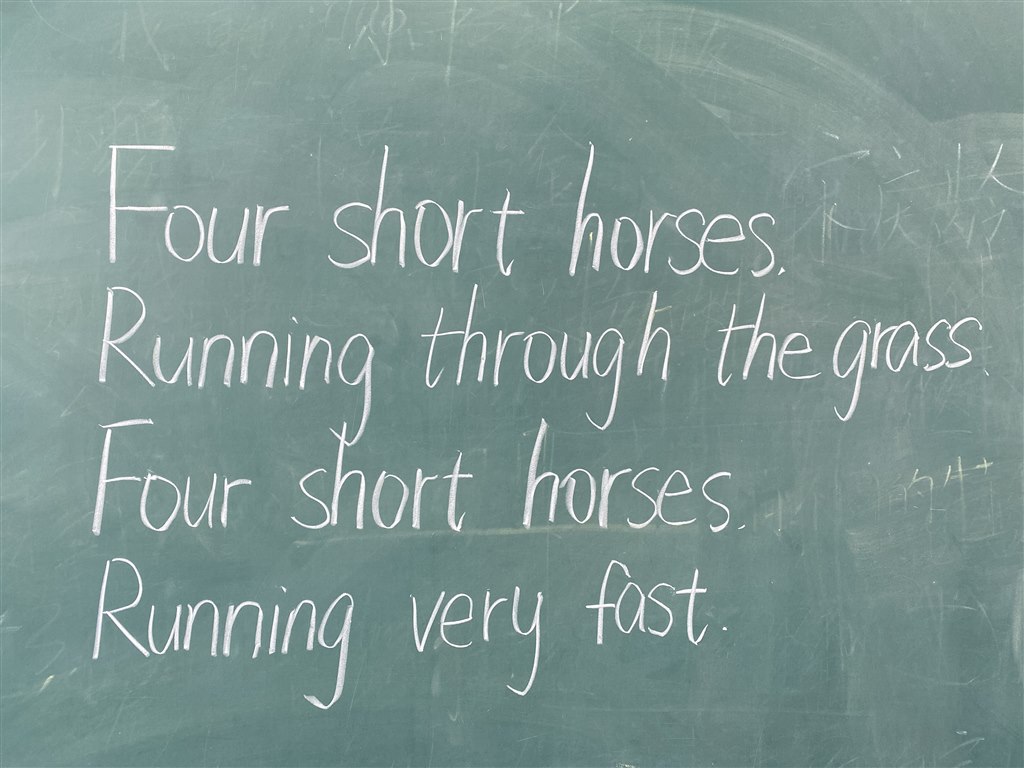 Four short horses.
Running through the grass.
Four short horses.
Running very fast.